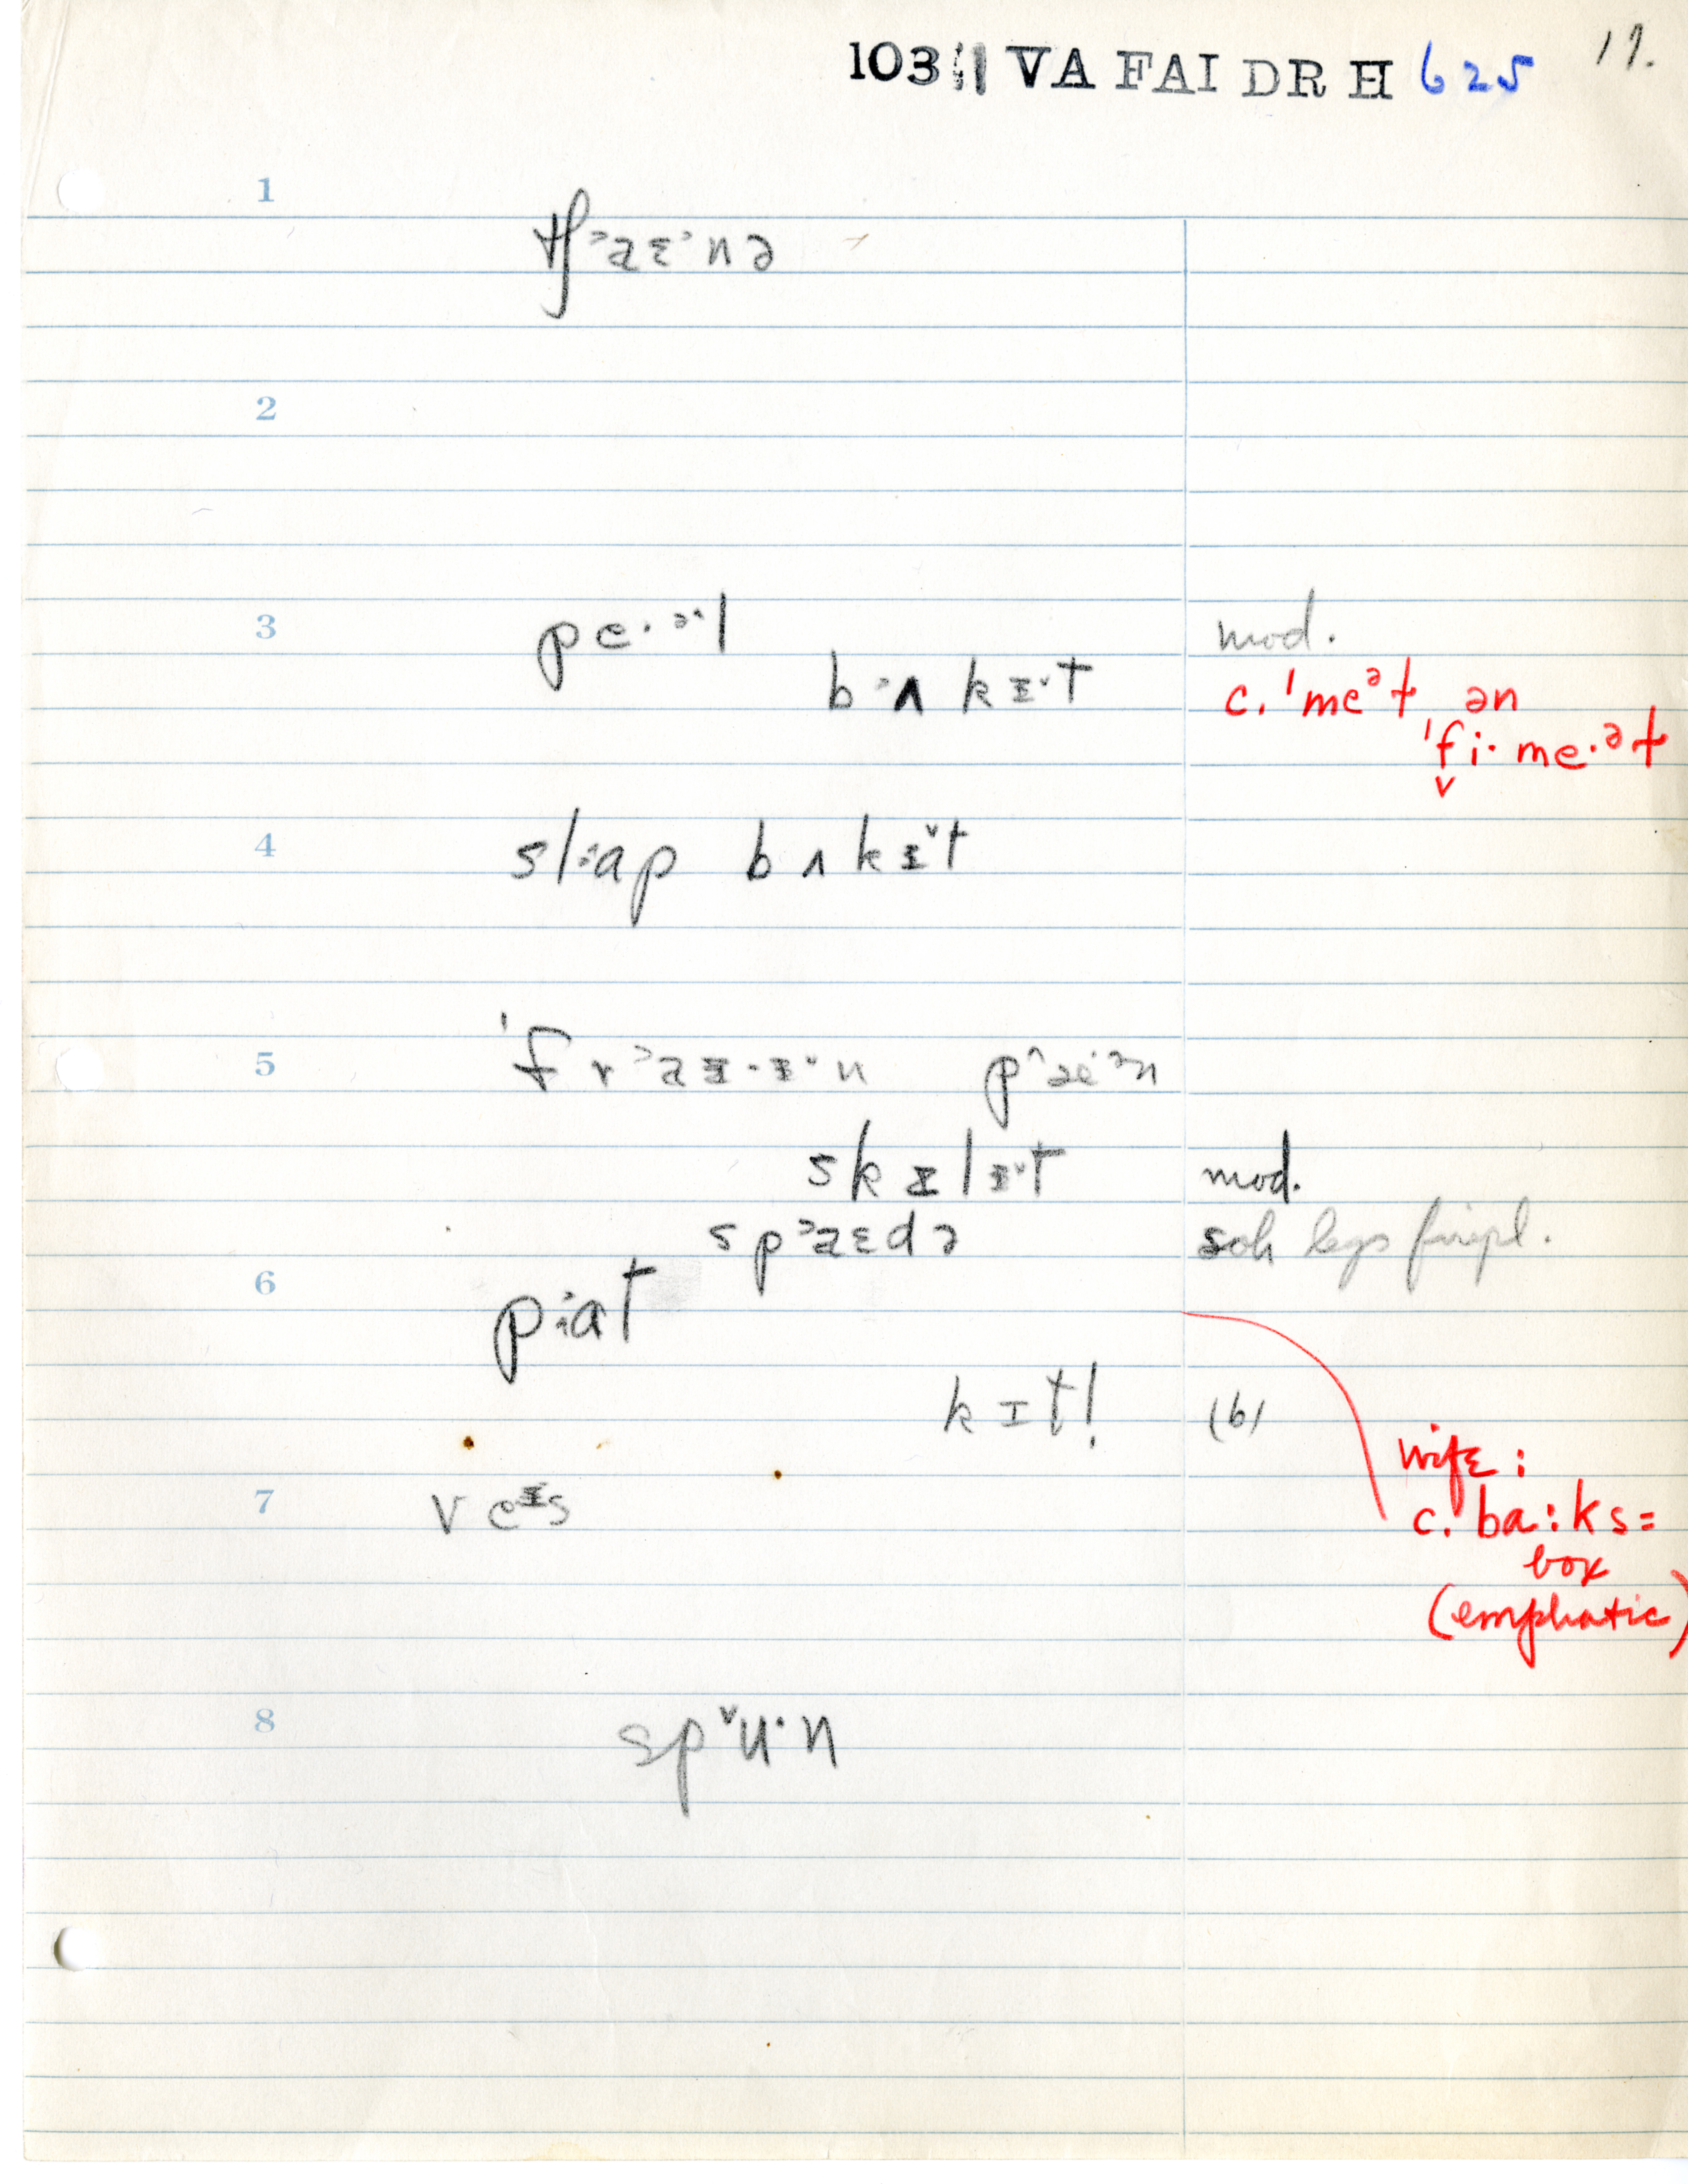 103 1 VA FAI DR H 625 17.
1
tʃ˃aɛ˃nə
2
3 pe·ə˄l mod.
b˃ʌ kɪ˅t c. ˈmeᵊɫ ən
ˈfi· me·ᵊɫ
4 sl˃ap bʌkɪ˅t
5 ˈfr˃aɪ·ɪ˅n p˄æ˄ᵊn
skɪlɪ˅t mod.
sp˃aɛdə soh legs firepl.
6 p˃at
kɪt! (b)
wife:
7 veᶦs c. ba:ks=
box
(emphatic)
8 sp˅u·n